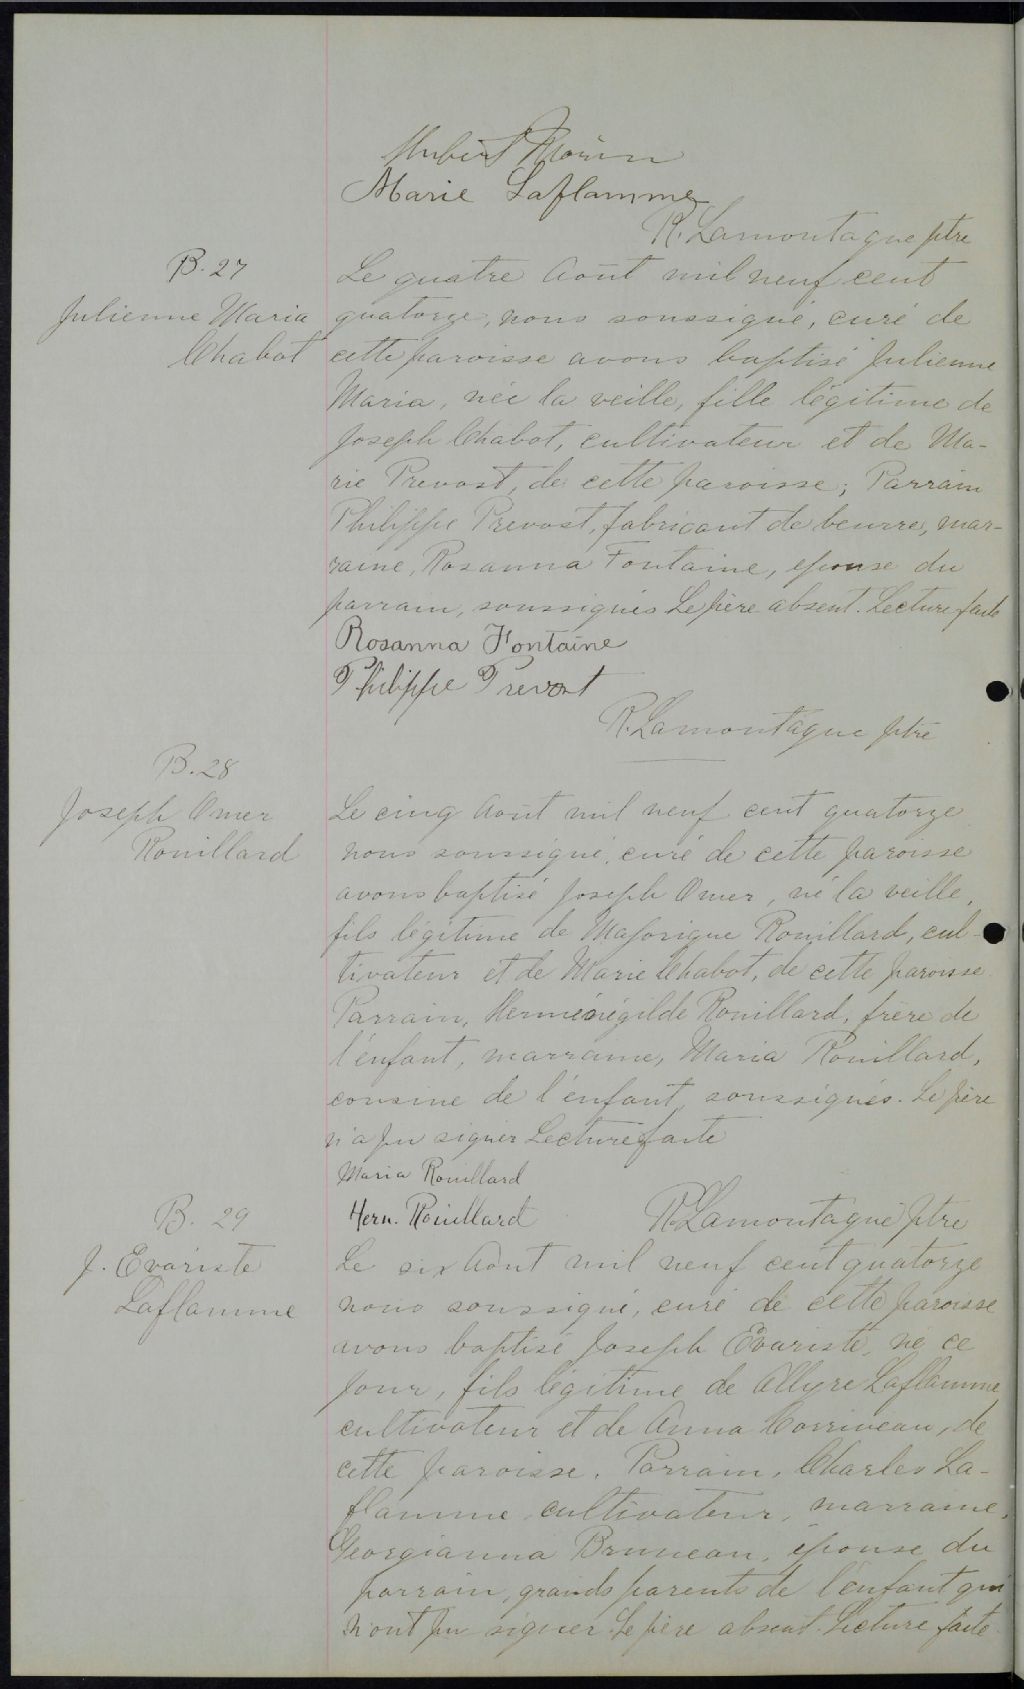 Hubert Morin
Marie Laflamme
R. Lamontagne ptre
B. 27
Julienne Maria
Chabot
Le quatre Août mil neuf cent
quatorze, nous soussigné, curé de
cette paroisse avons baptisé Julienne
Maria, née la veille, fille légitime de
Joseph Chabot, cultivateur et de Ma-
rie Prevost, de cette paroisse; Parrain
Philippe Prevost, fabricant de beurre, mar-
raine, Rosanna Fontaine, epouse du
parrain, soussignés Le père absent. Lecture faite
Rosanna Fontaine
Philippe Prevost
R. Lamontagne ptre
B. 28
Joseph Omer
Rouillard
Le cinq Août mil neuf cent quatorze
nous soussigné, curé de cette paroisse
avons baptisé Joseph Omer, né la veille,
fils légitime de Majorique Rouillard, cul-
tivateur et de Marie Chabot, de cette paroisse.
Parrain, Herménégilde Rouillard, frère de
l'enfant, marraine, Maria Rouillard,
cousine de l'enfant, soussignés. Le père
n'a pu signer Lecture faite
Maria Rouillard
Herm. Rouillard
R. Lamontagne ptre
B. 29
J. Evariste
Laflamme
Le six Août mil neuf cent quatorze
nous soussigné, curé de cette paroisse
avons baptisé Joseph Evariste, né ce
jour, fils légitime de Allyre Laflamme
cultivateur et de Anna Corriveau, de
cette paroisse. Parrain, Charles La-
flamme, cultivateur, marraine,
Georgianna Bruneau, épouse du
parrain, grands parents de l'enfant qui
n'ont pu signer. Le père absent. Lecture faite